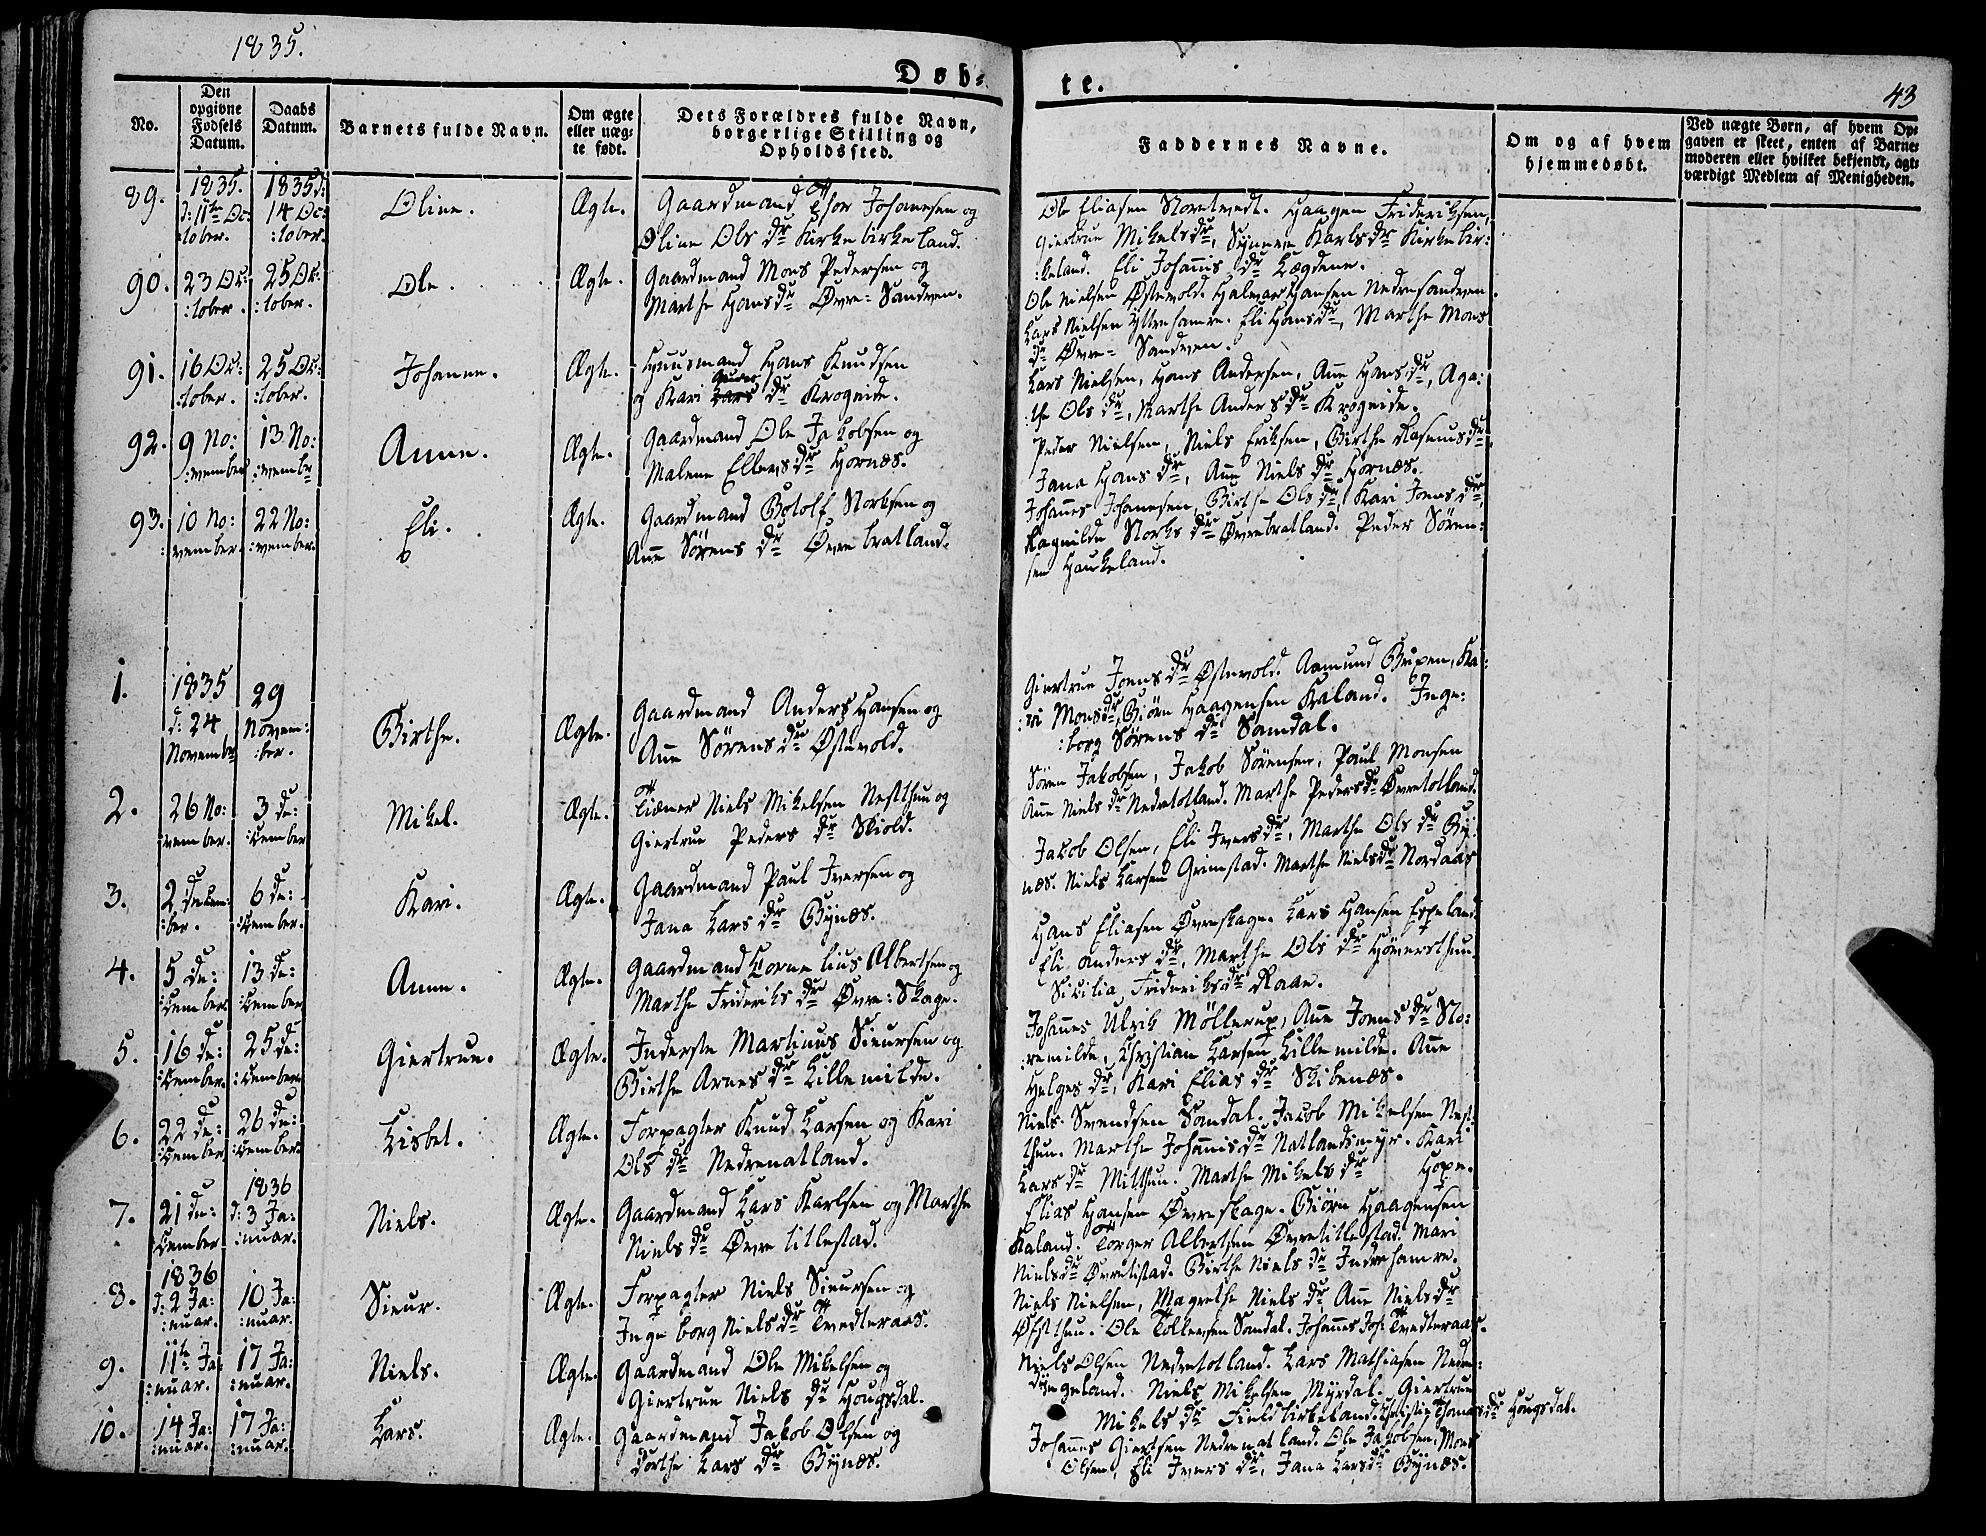 1835.
Døb=
te.
43
No.
Den opgivne Fødsels Datum.
Daabs Datum.
Barnets fulde Navn.
Om ægte eller uæg- te født.
Dets Forældres fulde Navn, borgerlige Stilling og Opholdssted.
Faddernes Navne.
Om og af hvem hjemmedøbt.
Ved uægte Børn, af hvem Op- gaven er skeet, enten af Barne- moderen eller hvilket bekjendt, agt- værdigt Medlem af Menigheden.
89.
1835. d: 11te Oc: :tober.
1835 d: 14 Oc: :tober.
Oline.
Ægte.
Gaardmand Thor Johannesen og
Oline Ols dr Kirkebirkeland.
Ole Eliasen Storetvedt. Haagen Fridericksen,
Giertrue Mikelsdr, Synneve Karls dr Kirkebir:
:keland. Eli Johannis dr Lægdene.
90.
23 Oc: :tober.
25 Oc: :tober.
Ole.
Ægte.
Gaardmand Mons Pedersen og
Marthe Hans dr Øvre=Sandven.
Ole Nielsen Østevold. Halvar Hansen Nedresandven
Lars Nielsen Yttrehamre. Eli Hansdr, Marthe Mons
dr Øvre=Sandven.
91.
16 Oc: :tober.
25 Oc: :tober.
Johanne.
Ægte.
Huusmand Hans Knudsen
og Kari Lars dr Krogeide.
Lars Nielsen, Hans Andersen, Ane Hansdr, Aga:
:the Ols dr, Marthe Anders dr Krogeide.
92.
9 No: :vember
13 No: :vembr
Anne.
Ægte.
Gaardmand Ole Jakobsen og
Malene Ellens dr Hornæs.
Peder Nielsen, Niels Eriksen, Birthe Rasmusdr
Jana Hans dr, Ane Niels dr Hornæs.
93.
10 No: :vember.
22 No: :vember.
Eli.
Ægte.
Gaardmand Botolf Storksen og
Ane Sørens dr Øvrebratland.
Johannes Johannesen, Birthe Ols dr, Kari Joens dr
Ragnilde Storks dr Øvrebratland. Peder Søren:
sen Haukeland.
1.
1835 d: 24 Novembr
29 Novem: :ber.
Birthe.
Ægte.
Gaardmand Anders Hansen og
Ane Sørens dr Østevold.
Giertrue Joens dr Østevold. Aamund Bupen, Ka:
:ri Monsdr, Biørn Haagensen Kaland. Inge:
:borg Sørens dr Samdal.
2.
26 No: :vember.
3 de: :cember
Mikel.
Ægte.
Tiener Niels Mikelsen Nestthun og
Giertrue Peders dr Skiold.
Søren Jakobsen, Jakob Sørensen, Paul Monsen
Ane Niels dr Nedretotland. Marthe Pedersdr Øvretotland.
3.
2 decem: :ber.
6 de: :cember.
Kari.
Ægte.
Gaardmand Paul Iversen og
Jana Lars dr Bynæs.
Jakob Olsen, Eli Ivers dr, Marthe Ols dr By:
næs. Niels Larsen Grimstad. Marthe Nielsdr Nordaas
4.
5 de: :cember.
13 de: :cember
Anne.
Ægte.
Gaardmand Cornelius Albertsen og
Marthe Frideriks dr Øvre:Skage.
Hans Eliasen Øvreskage. Lars Hansen Espeland.
Eli Anders dr, Marthe Ols dr Høversthun
Sikilia Frideriksdr Raae.
5.
16 de: :cember.
25 de: :cember.
Giertrue.
Ægte.
Inderste Martinus Siursen og
Birthe Arnes dr Lillemilde.
Johannes Ulrik Möllerup, Ane Joens dr Sto:
:remilde. Christian Larsen Lillemilde. Ane
Helges dr, Kari Elias dr Skibenæs.
6.
22 de: :cember
26 de: :cember.
Lisbet.
Ægte.
Forpagter Knud Larsen og Kari
Ols dr Nedrenatland.
Niels Svendsen Samdal. Jacob Mikelsen Nest:
thun. Marthe Johannis dr Natlandsmyr. Kari
Lars dr Mitthun. Marthe Mikels dr Hope.
7.
21 de: :cember
1836 d: 3 Ja: :nuar.
Niels.
Ægte.
Gaardmand Lars Karlsen og Marthe
Niels dr Øvre litlestad.
Elias Hansen Øvreskage. Biørn Haagensen
Kaland. Torger Albertsen Øvretitlestad. Mari
Nielsdr Øvretistad. Birthe Niels dr Indrehamre.
8.
1836 d: 2 Ja: :nuar.
10 Ja: :nuar.
Sieur.
Ægte.
Forpagter Niels Sieursen og
Ingeborg Niels dr Tvedteraas.
Niels Nielsen, Magrethe Niels dr, Ane Nielsdr
Øfstthun. Ole Tollevsen Samdal. Johannes Joh: Tvedteraas.
9.
11te Ja: :nuar.
17 Ja: :nuar.
Niels.
Ægte.
Gaardmand Ole Mikelsen og
Giertrue Niels dr Hougsdal.
Niels Olsen Nedretotland. Lars Mathiasen Nedre:
dyngeland. Niels Mikelsen Myrdal. Giertrue
Mikels dr Fieldbirkeland. Christi Thomas dr Hougsdal.
10.
14 Ja: :nuar.
17 Ja: :nuar.
Lars.
Ægte.
Gaardmand Jakob Olsen og
Dorthe Lars dr Bynæs.
Johannes Giertsen Nedrenatland. Ole Jakobsen, Mons
Olsen, Eli Ivers dr, Jana Larsdr Bynæs.